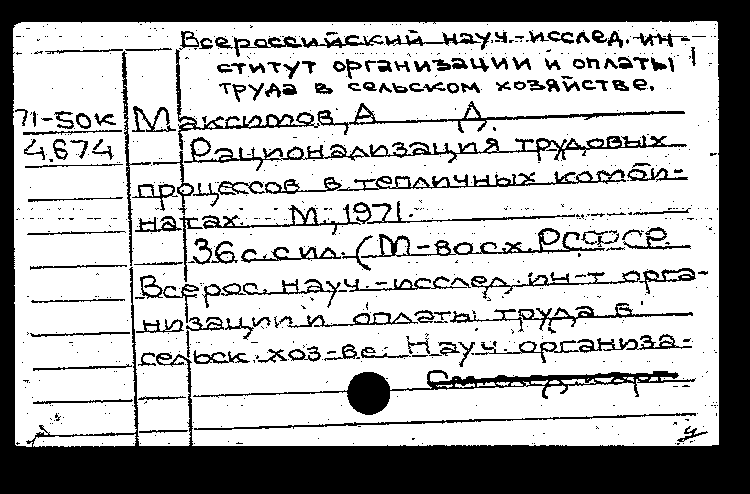 Всероссийский науч.-исслед. ин-
ститут организации и оплаты
труда в сельском хозяйстве.
71-50к Максимов, А Д.
4.674 Рационализация трудовых
процессов в тепличных комби-
натах. М., 1971.
36 с. с ил. (М-во с.х. РСФСР.
Всерос. науч.-исслед. ин-т орга-
низации и оплаты труда в
сельск. хоз-ве. Науч. организа-
См. след. карт.